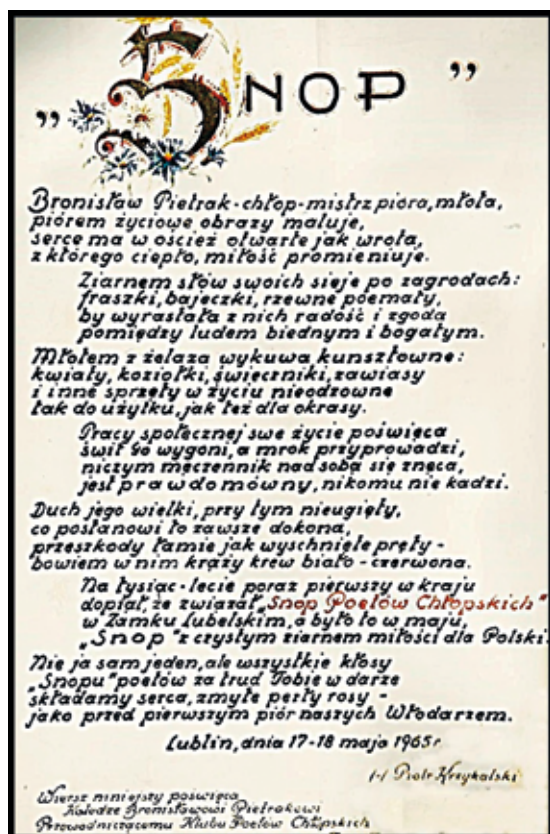 „SNOP”
Bronisław Pietrak-chłop-mistrz pióra, młota,
piórem życiowe obrazy maluje,
serce ma w oścież otwarte jak wrota,
z którego ciepło, miłość promieniuje.
Ziarnem słów swoich sieje po zagrodach:
fraszki, bajeczki, rzewne poematy,
by wyrastała z nich radość i zgoda
pomiędzy ludem biednym i bogatym.
Młotem z żelaza wykuwa kunsztowne:
kwiaty, koziołki, świeczniki, zawiasy
i inne sprzęty w życiu nieodzowne
tak do użytku, jak też dla okrasy.
Pracy społecznej swe życie poświęca
świt go wygoni, a mrok przyprowadzi,
niczym męczennik nad sobą się znęca,
jest prawdomówny, nikomu nie kadzi.
Duch jego wielki, przy tym nieugięty,
co postanowi to zawsze dokona,
przeszkody łamie jak wyschnięte pręty-
bowiem w nim krąży krew biało-czerwona.
Na tysiąc-lecie poraz pierwszy w kraju
dopiął, że związał „Snop Poetów Chłopskich”
w Zamku Lubelskim, a było to w maju,
„Snop” z czystym ziarnem miłości dla Polski.
Nie ja sam jeden, ale wszystkie kłosy
„Snopu” poetów za trud Tobie w darze
składamy serca, zmyte perły rosy -
jako przed pierwszym piór naszych Włodarzem.
Lublin, dnia 17-18 maja 1965r.
(-) Piotr Krzykalski
Wiersz niniejszy poświęca
Koledze Bronisławowi Pietrakowi
Przewodniczącemu Klubu Poetów Chłopskich